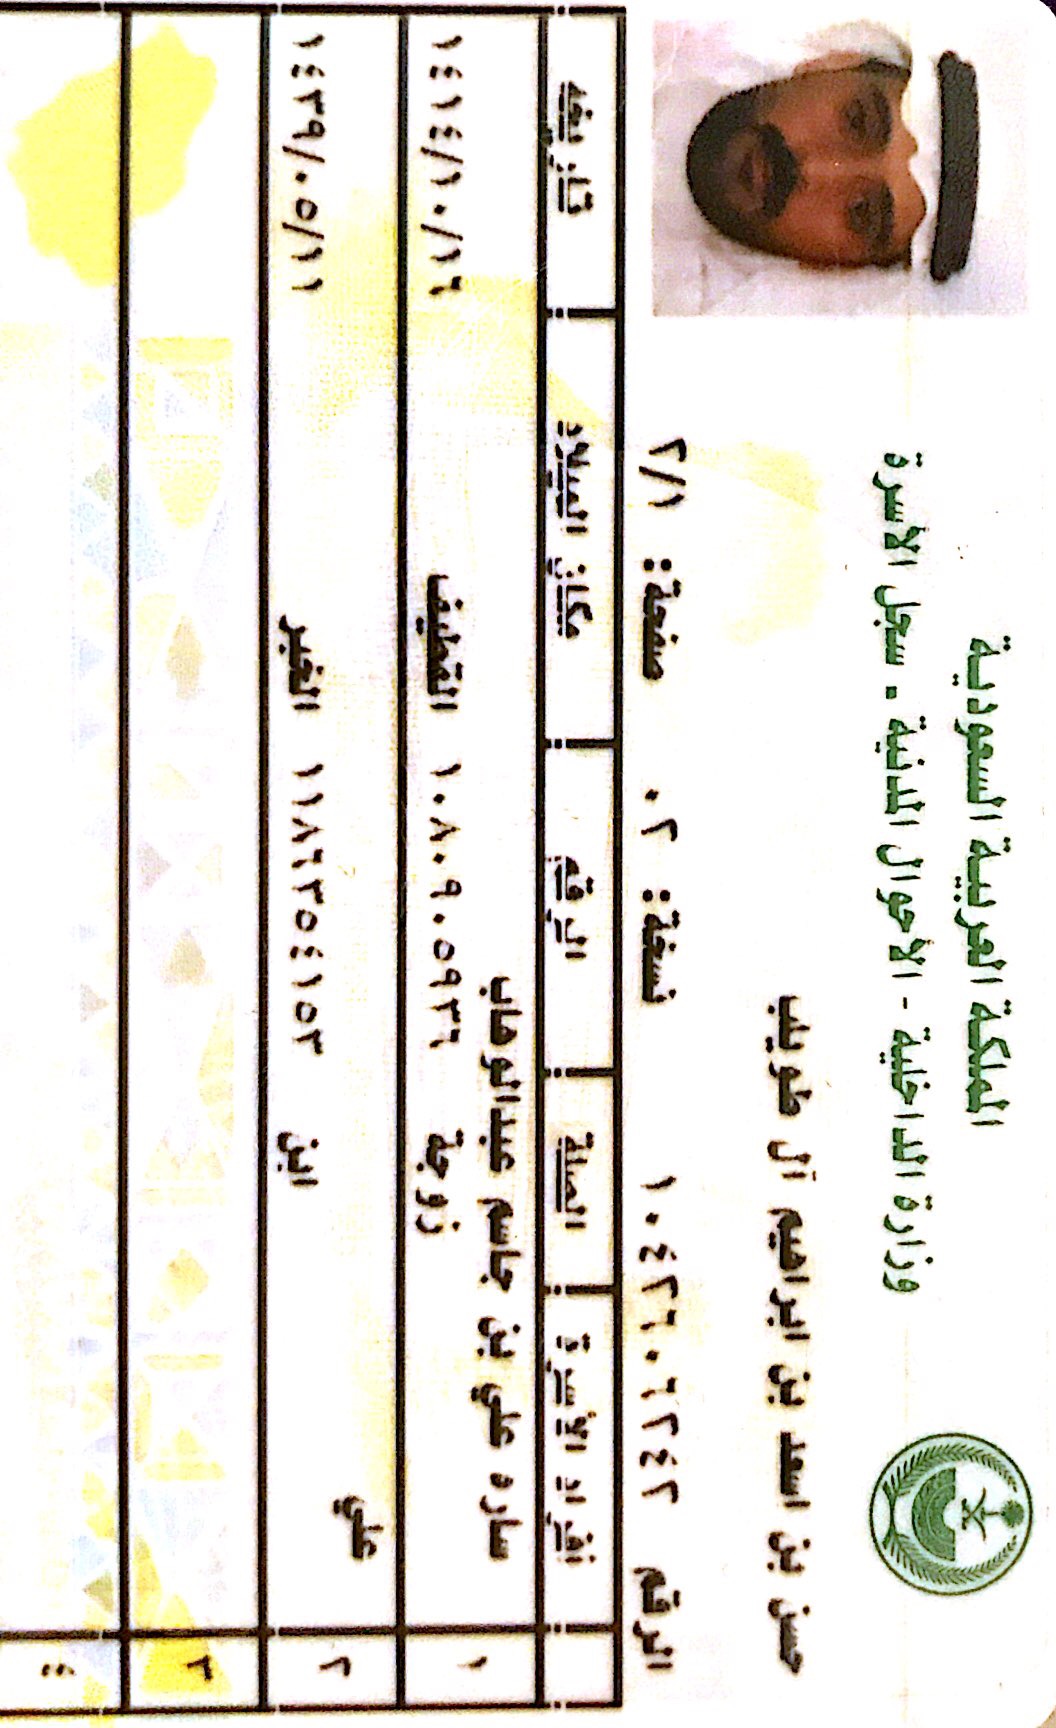 المملكة العربية السعودية
وزارة الداخلية - الأحوال المدنية - سجل الأسرة
حسن بن اسعد بن ابراهيم آل طويلب
الرقم ١٠٤٢٦٠٦٢٤٢ نسخة: ٠٢ صفحة: ٢/١
أفراد الأسرة الصلة الرقم مكان الميلاد تاريخه
١ ساره علي بن جاسم عبدالوهاب زوجة ١٠٨٠٩٠٥٩٣٦ القطيف ١٤١٤/١٠/١٦
٢ علي ابن ١١٨٦٣٥٤١٥٣ الخبر ١٤٣٩/٠٥/١١
٣
٤